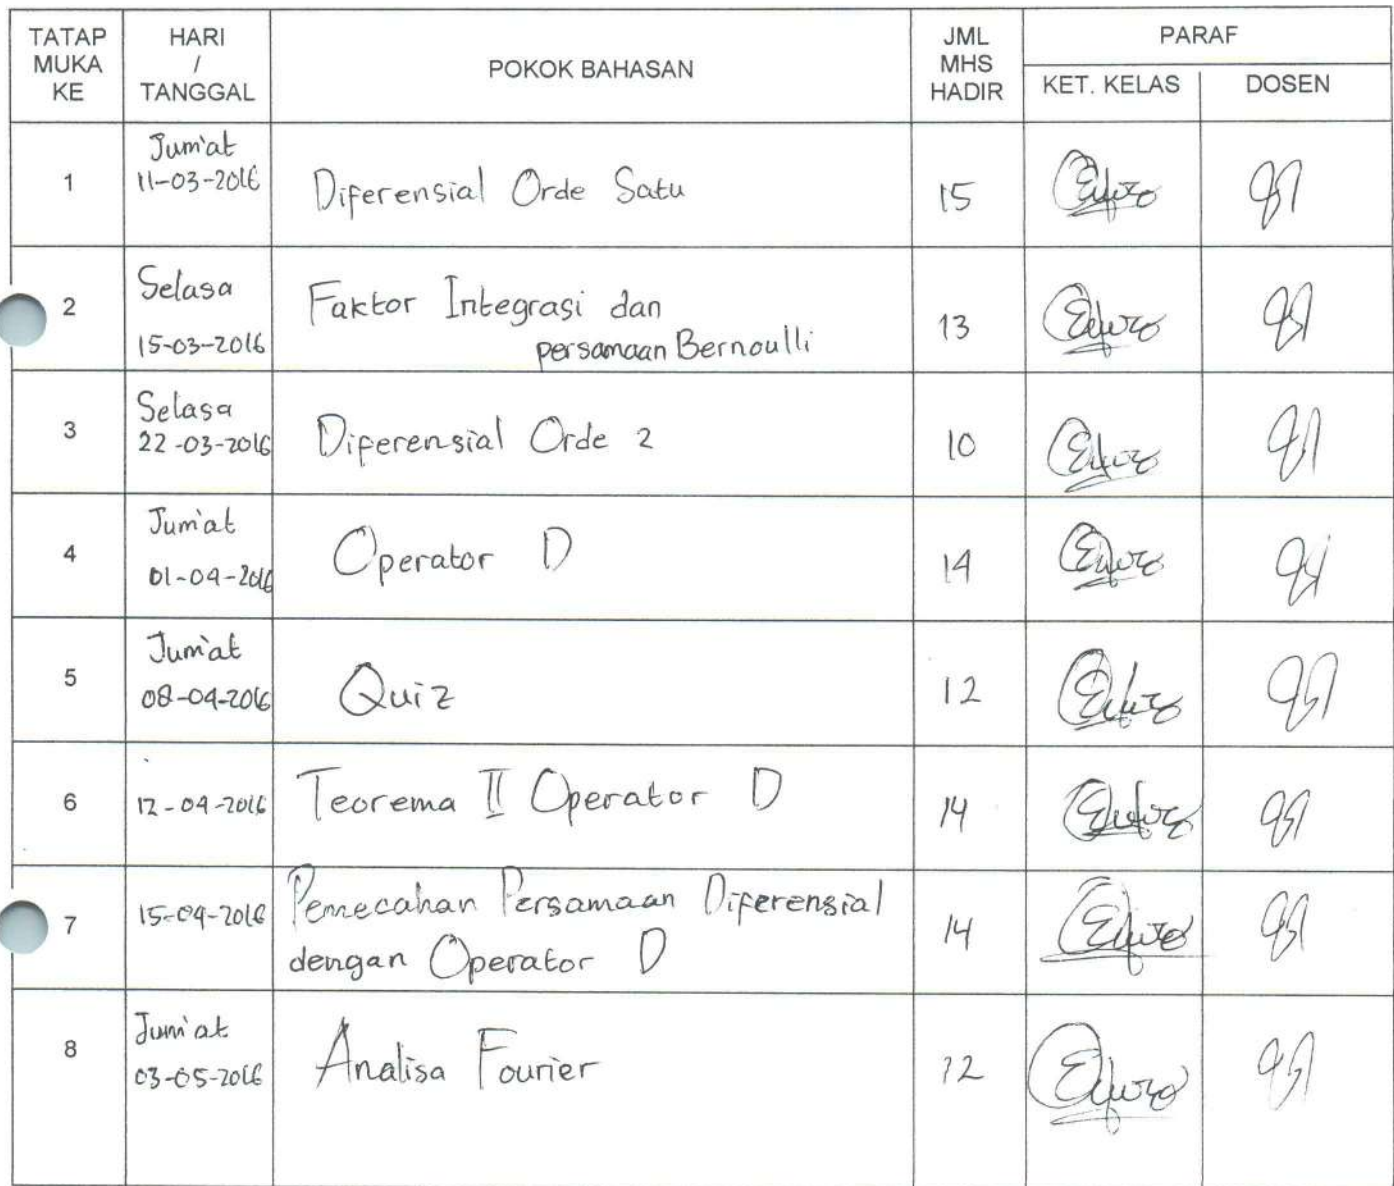 TATAP MUKA KE | HARI / TANGGAL | POKOK BAHASAN | JML MHS HADIR | PARAF
KET. KELAS | DOSEN
1 | Jum'at 11-03-2016 | Diferensial Orde Satu | 15
2 | Selasa 15-03-2016 | Faktor Integrasi dan persamaan Bernoulli | 13
3 | Selasa 22-03-2016 | Diferensial Orde 2 | 10
4 | Jum'at 01-04-2016 | Operator D | 14
5 | Jum'at 08-04-2016 | Quiz | 12
6 | 12-04-2016 | Teorema II Operator D | 14
7 | 15-04-2016 | Pemecahan Persamaan Diferensial dengan Operator D | 14
8 | Jum'at 03-05-2016 | Analisa Fourier | 12